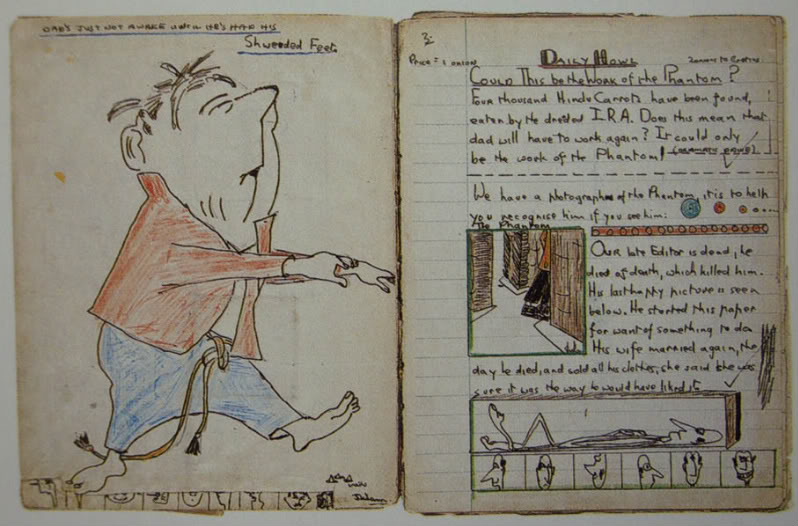 DAD'S JUST NOT AWAKE UNTIL HE'S HAD HIS
Shweeded Feet.
3
DAILY HOWL
Price = 1 onion
Could This be the Work of the Phantom?
Four thousand Hindu Carrots have been found,
eaten by the dreded I.R.A. Does this mean that
dad will have to work again? It could only
be the work of the Phantom! (dramatic pause)
We have a photographe of the Phantom, it is to help
you recognise him if you see him:
The Phantom
Our late Editor is dead, he
died of death, which killed him.
His last happy picture is seen
below. He started this paper
for want of something to do
His wife married again, the
day he died, and sold all his clothes, she said she was
sure it was the way he would have liked it.